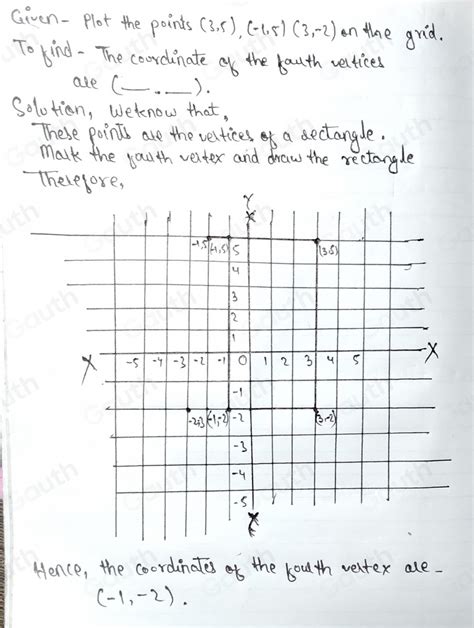 Given - Plot the points (3,5), (-1,5) (3,-2) on the grid.
To find - The coordinate of the fouth vertices
are (__ . __).
Solution, We know that,
These points are the vertices of a rectangle.
Mark the fouth vertex and draw the rectangle
Therefore,
Y
-1,5 (-1,5) 5 (3,5)
4
3
2
1
X -5 -4 -3 -2 -1 0 1 2 3 4 5 X
-1
(-1,-2) -2 (3,-2)
-3
-4
-5
Y
Hence, the coordinates of the fourth vertex are -
(-1, -2).